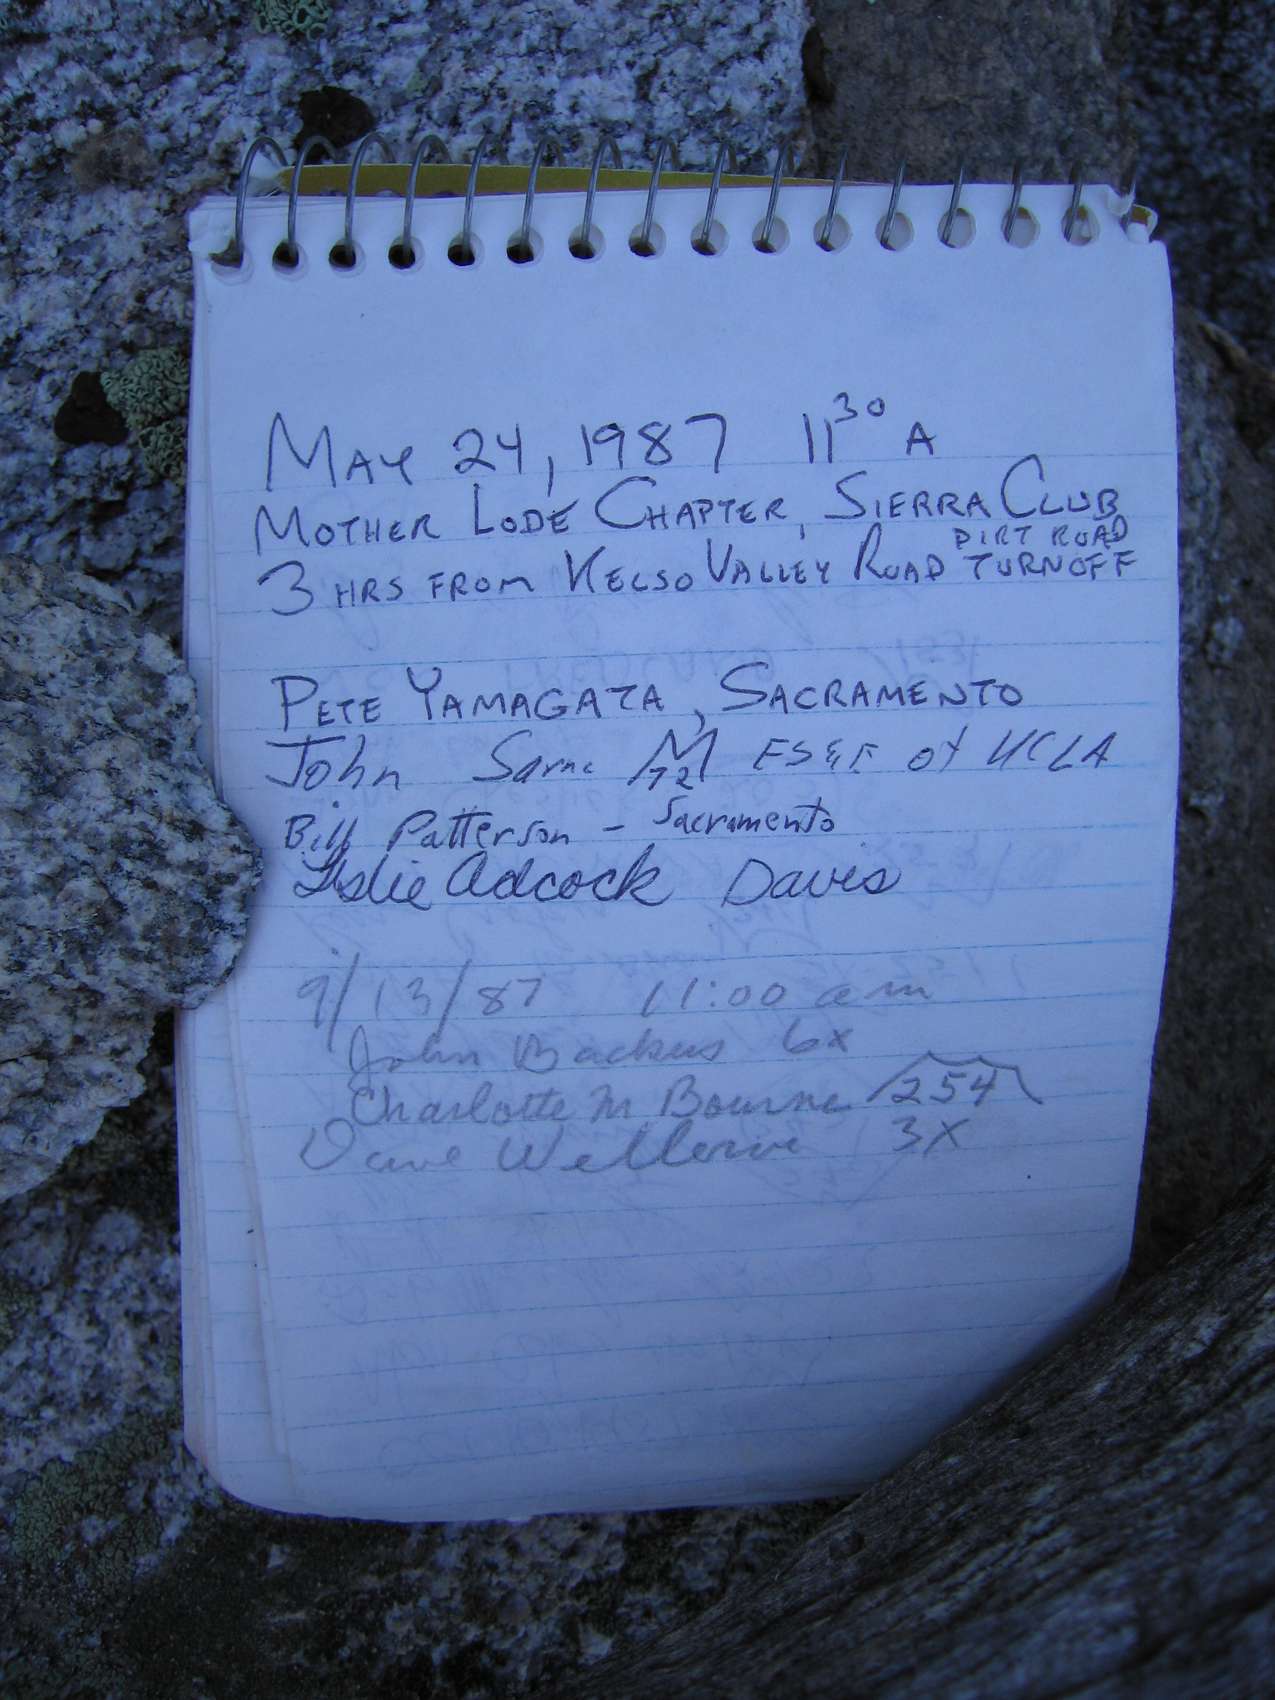 May 24, 1987 11 30 A
Mother Lode Chapter, Sierra Club
3 hrs from Kelso Valley Road dirt road turnoff
Pete Yamagata, Sacramento
John 72 of UCLA
Bill Patterson - Sacramento
Leslie Adcock Davis
9/13/87 11:00 am
John Backus 6x
Charlotte M Bourne 254
Dave 3X